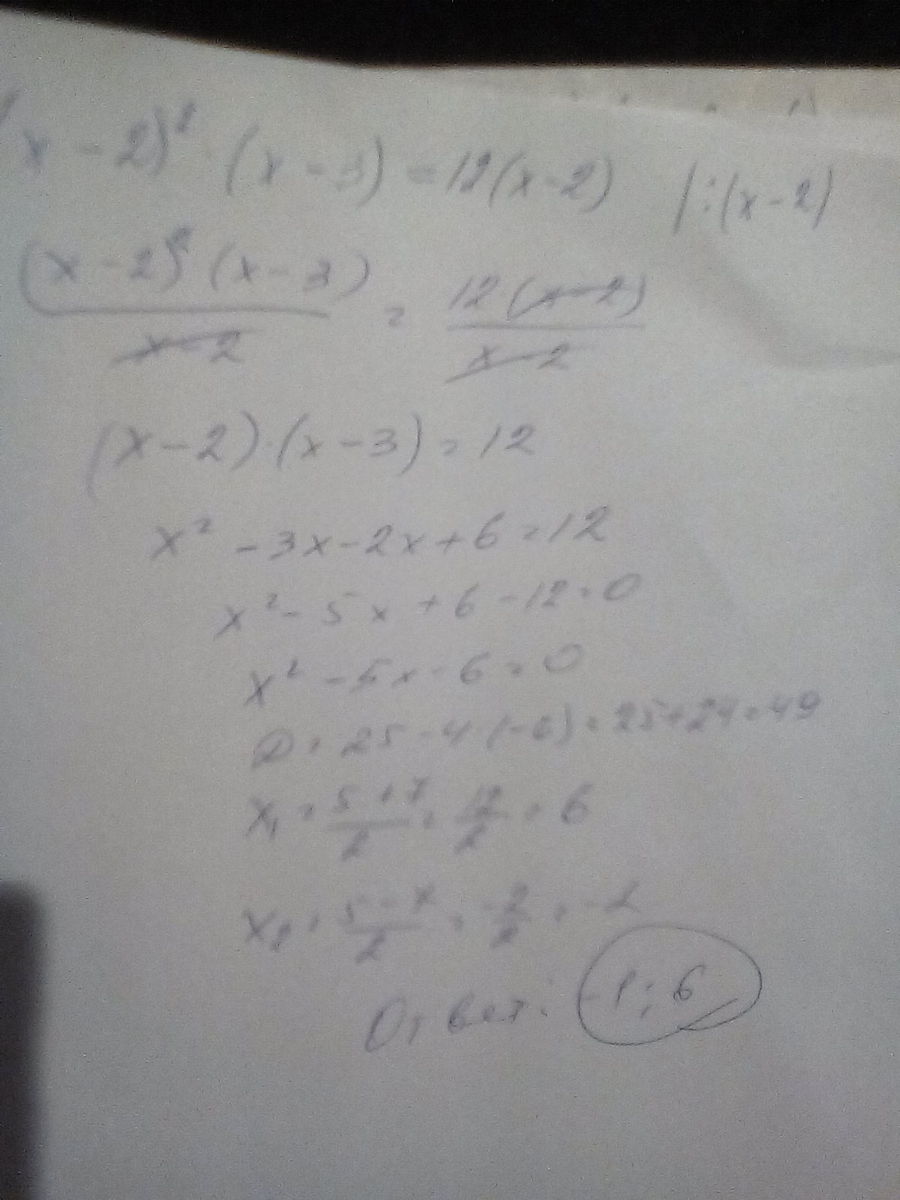 (x - 2)² · (x - 3) = 12(x-2) | :(x-2)
(x - 2)² (x - 3) / x - 2 = 12 (x-2) / x - 2
(x - 2)·(x - 3) = 12
x² - 3x - 2x + 6 = 12
x² - 5x + 6 - 12 = 0
x² - 5x - 6 = 0
D = 25 - 4·(-6) = 25+24 = 49
x₁ = 5 + 7 / 2 = 12 / 2 = 6
x₂ = 5 - 7 / 2 = -2 / 2 = -1
Ответ: -1; 6